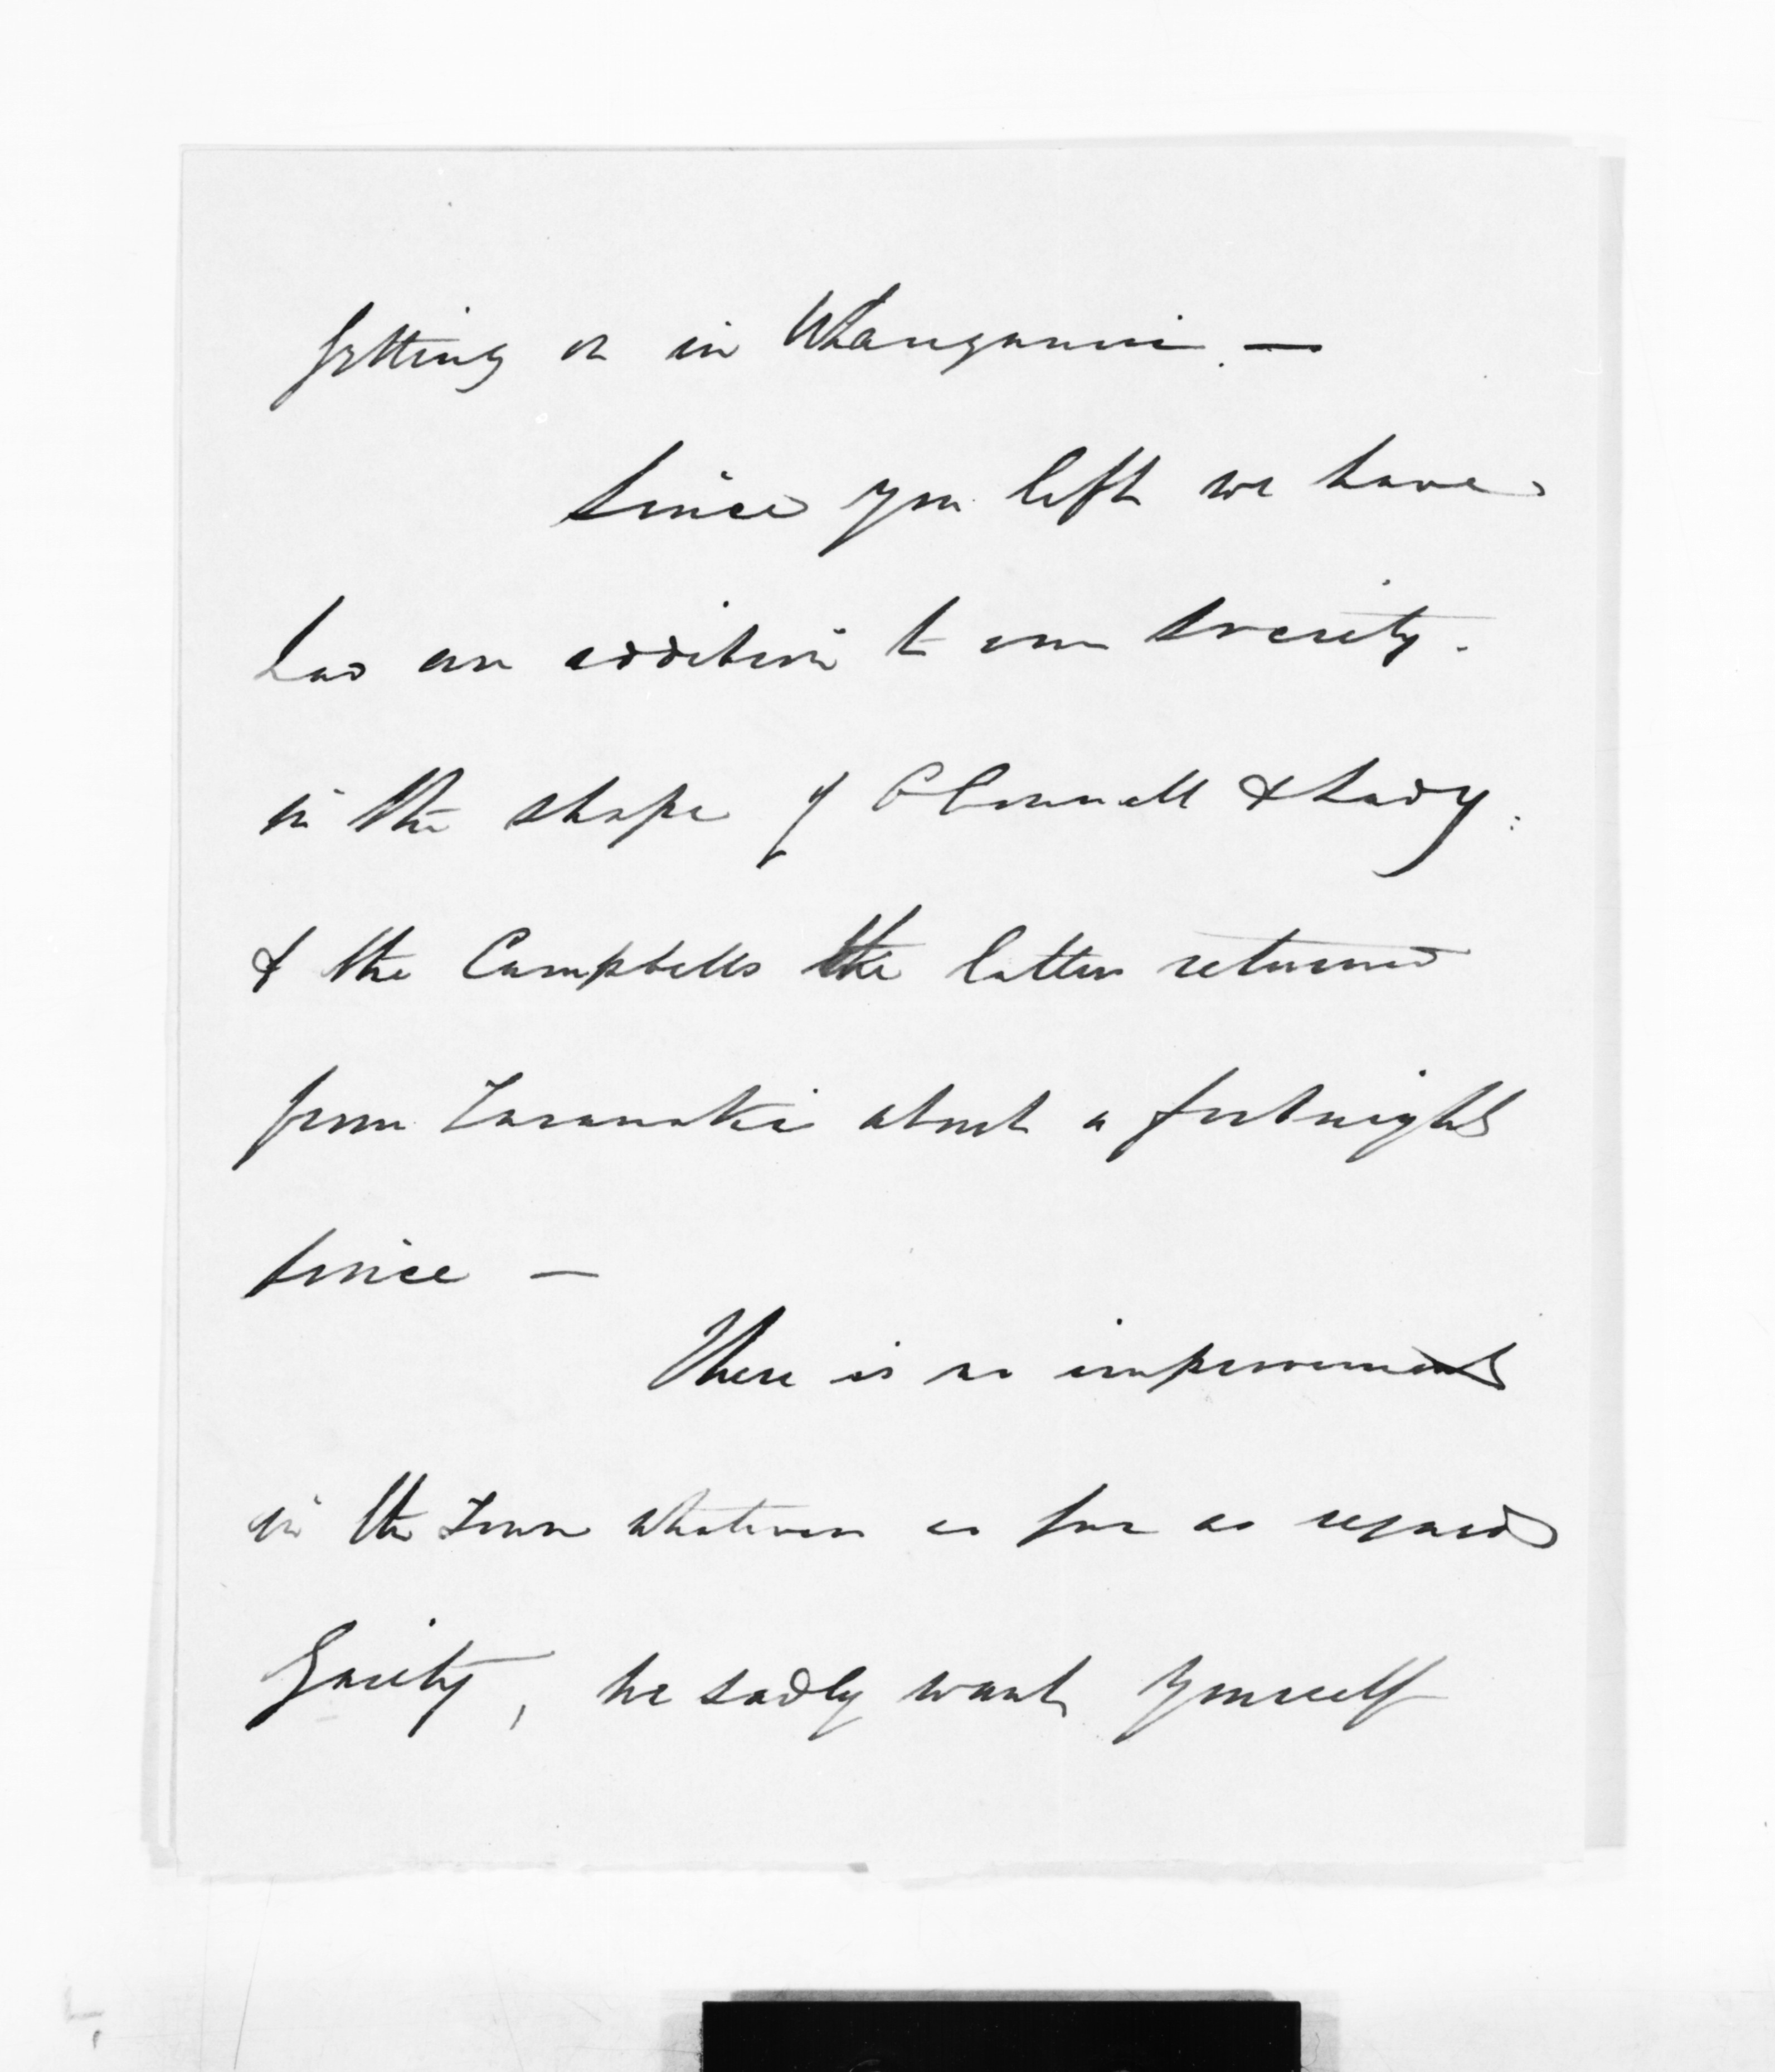 getting on in Whanganui. —
Since you left we have
had an addition to our Society.
in the shape of O'Connell & Lady
& the Campbells the latter returned
from Taranaki about a fortnight
since —
There is no improvement
in the Town whatever as far as regards
Gaiety, we sadly want yourself